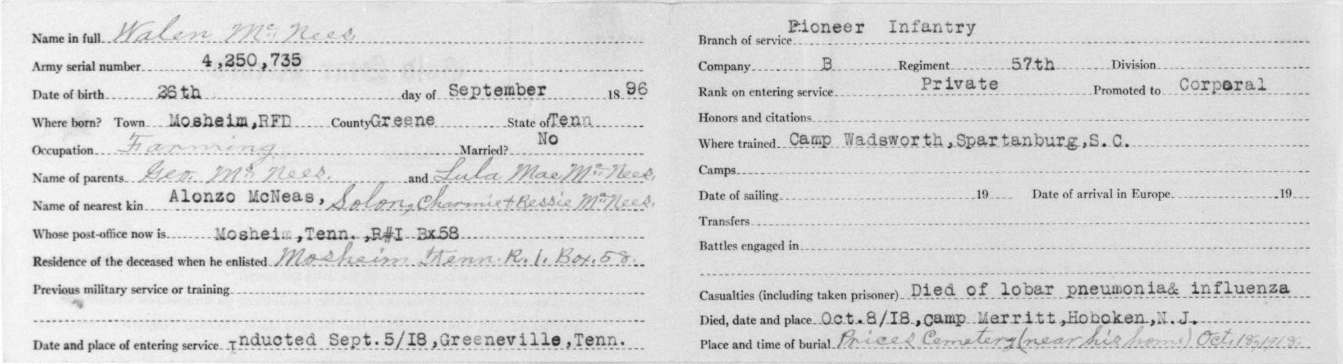 Name in full Walen McNees
Army serial number 4,250,735
Date of birth 26th day of September 1896
Where born? Town Mosheim,RFD County Greene State of Tenn
Occupation Farming Married? No
Name of parents Geo. McNees. and Lula Mae McNees
Name of nearest kin Alonzo McNeas, Solon, Charmie + Ressie McNees.
Whose post-office now is Mosheim,Tenn.,R#I Bx58
Residence of the deceased when he enlisted Mosheim Tenn. R. 1. Box. 58.
Previous military service or training
Date and place of entering service Inducted Sept.5/18,Greeneville,Tenn.
Pioneer Infantry
Branch of service
Company B Regiment 57th Division
Rank on entering service Private Promoted to Corporal
Honors and citations
Where trained Camp Wadsworth,Spartanburg,S.C.
Camps
Date of sailing 19 Date of arrival in Europe 19
Transfers
Battles engaged in
Casualties (including taken prisoner) Died of lobar pneumonia& influenza
Died, date and place Oct.8/18,Camp Merritt,Hoboken,N.J.
Place and time of burial Prices Cemetery (near his home) Oct.